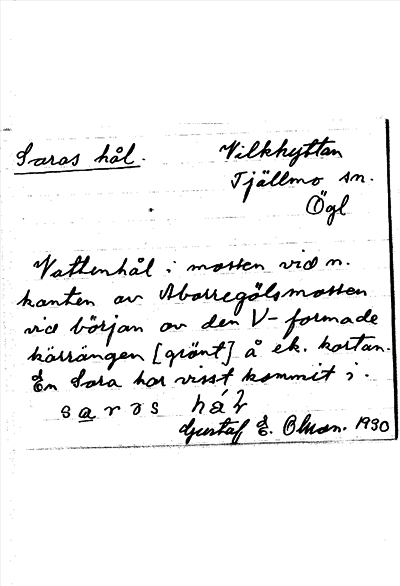 Saras hål.
Vilkhyttan
Tjällmo sn.
Ögl
Vattenhål i mossen vid n.
kanten av Aborregölsmossen
vid början av den V-formade
kärrängen [grönt] å ek. kartan.
En Sara har visst kommit i.
Gustaf E. Olsson. 1930